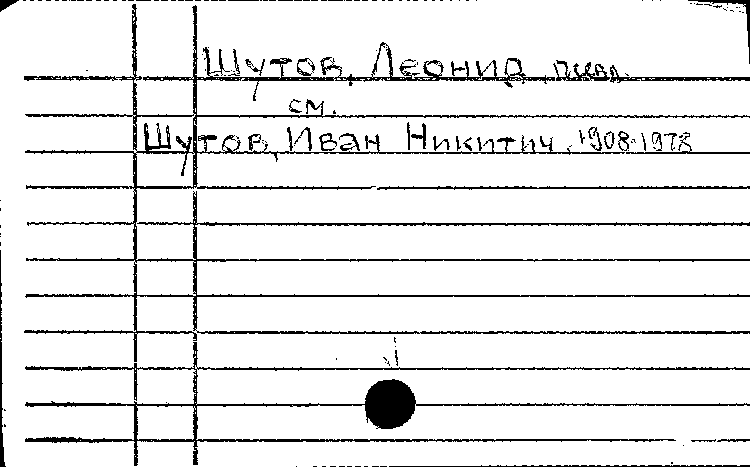 Шутов, Леонид, псевд.
см.
Шутов, Иван Никитич, 1908-1978